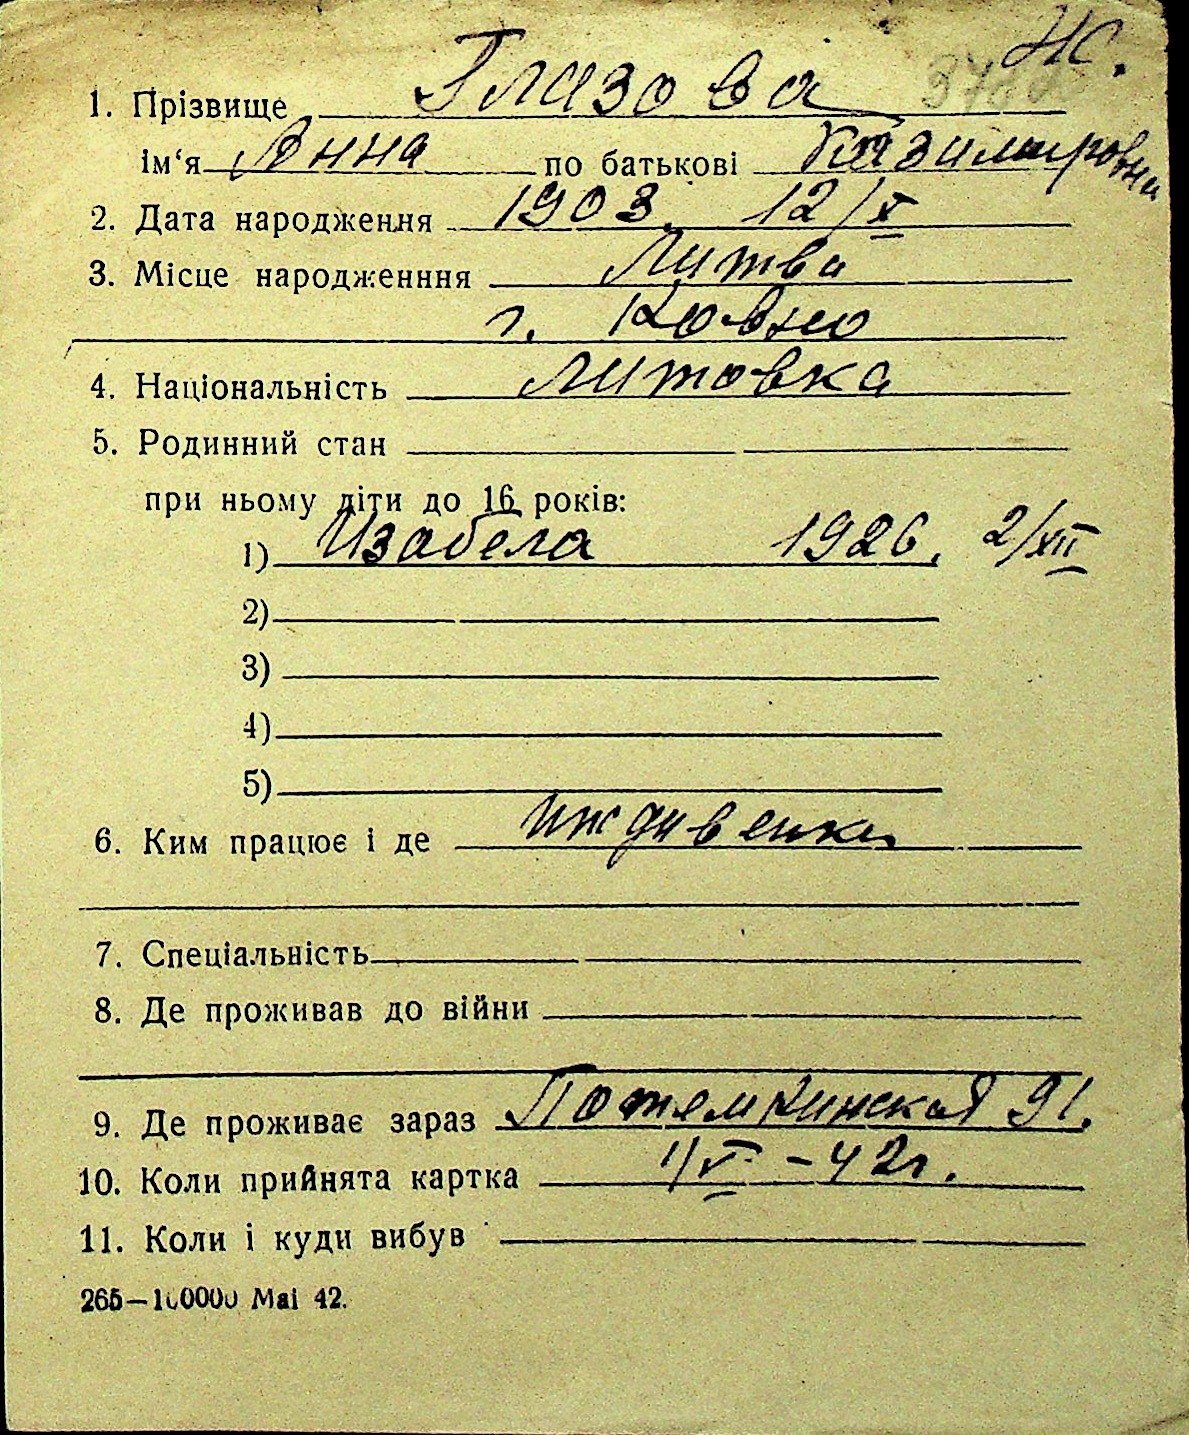 Ж.
1. Прізвище Глазова
ім‘я Анна по батькові Казимировна
2. Дата народження 1903. 12/X
3. Місце народженння Литва
г. Ковно
4. Національність литовка
5. Родинний стан
при ньому діти до 16 років:
1) Изабела 1926. 2/XII
2)
3)
4)
5)
6. Ким працює і де иждивенка
7. Спеціальність
8. Де проживав до війни
9. Де проживає зараз Потемкинская 91.
10. Коли прийнята картка 1/V - 42г.
11. Коли і куди вибув
265—100000 Mai 42.